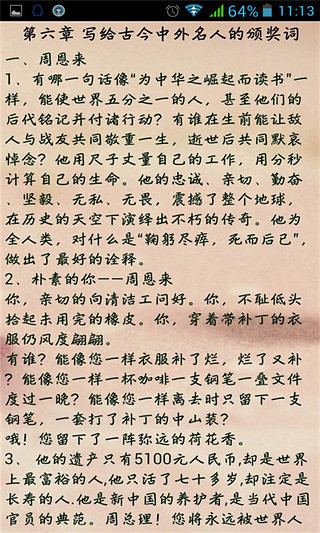 64% 11:13
第六章 写给古今中外名人的颁奖词
一、周恩来
1、有哪一句话像“为中华之崛起而读书”一
样，能使世界五分之一的人，甚至他们的
后代铭记并付诸行动？有谁在生前能让敌
人与战友共同敬重一生，逝世后共同默哀
悼念？他用尺子丈量自己的工作，用分秒
计算自己的生命。他的忠诚、亲切、勤奋
、坚毅、无私、无畏，震撼了整个地球，
在历史的天空下演绎出不朽的传奇。他为
全人类，对什么是“鞠躬尽瘁，死而后己”，
做出了最好的诠释。
2、朴素的你——周恩来
你，亲切的向清洁工问好。你，不耻低头
拾起未用完的橡皮。你，穿着带补丁的衣
服仍风度翩翩。
有谁？能像您一样衣服补了烂，烂了又补
？能像您一样一杯咖啡一支钢笔一叠文件
度过一晚？能像您一样离去时只留下一支
钢笔，一套打了补丁的中山装？
哦！您留下了一阵弥远的荷花香。
3、 他的遗产只有5100元人民币,却是世界
上最富裕的人,他只活了七十多岁,却注定是
长寿的人.他是新中国的养护者,是当代中国
官员的典范。周总理！您将永远被世界人